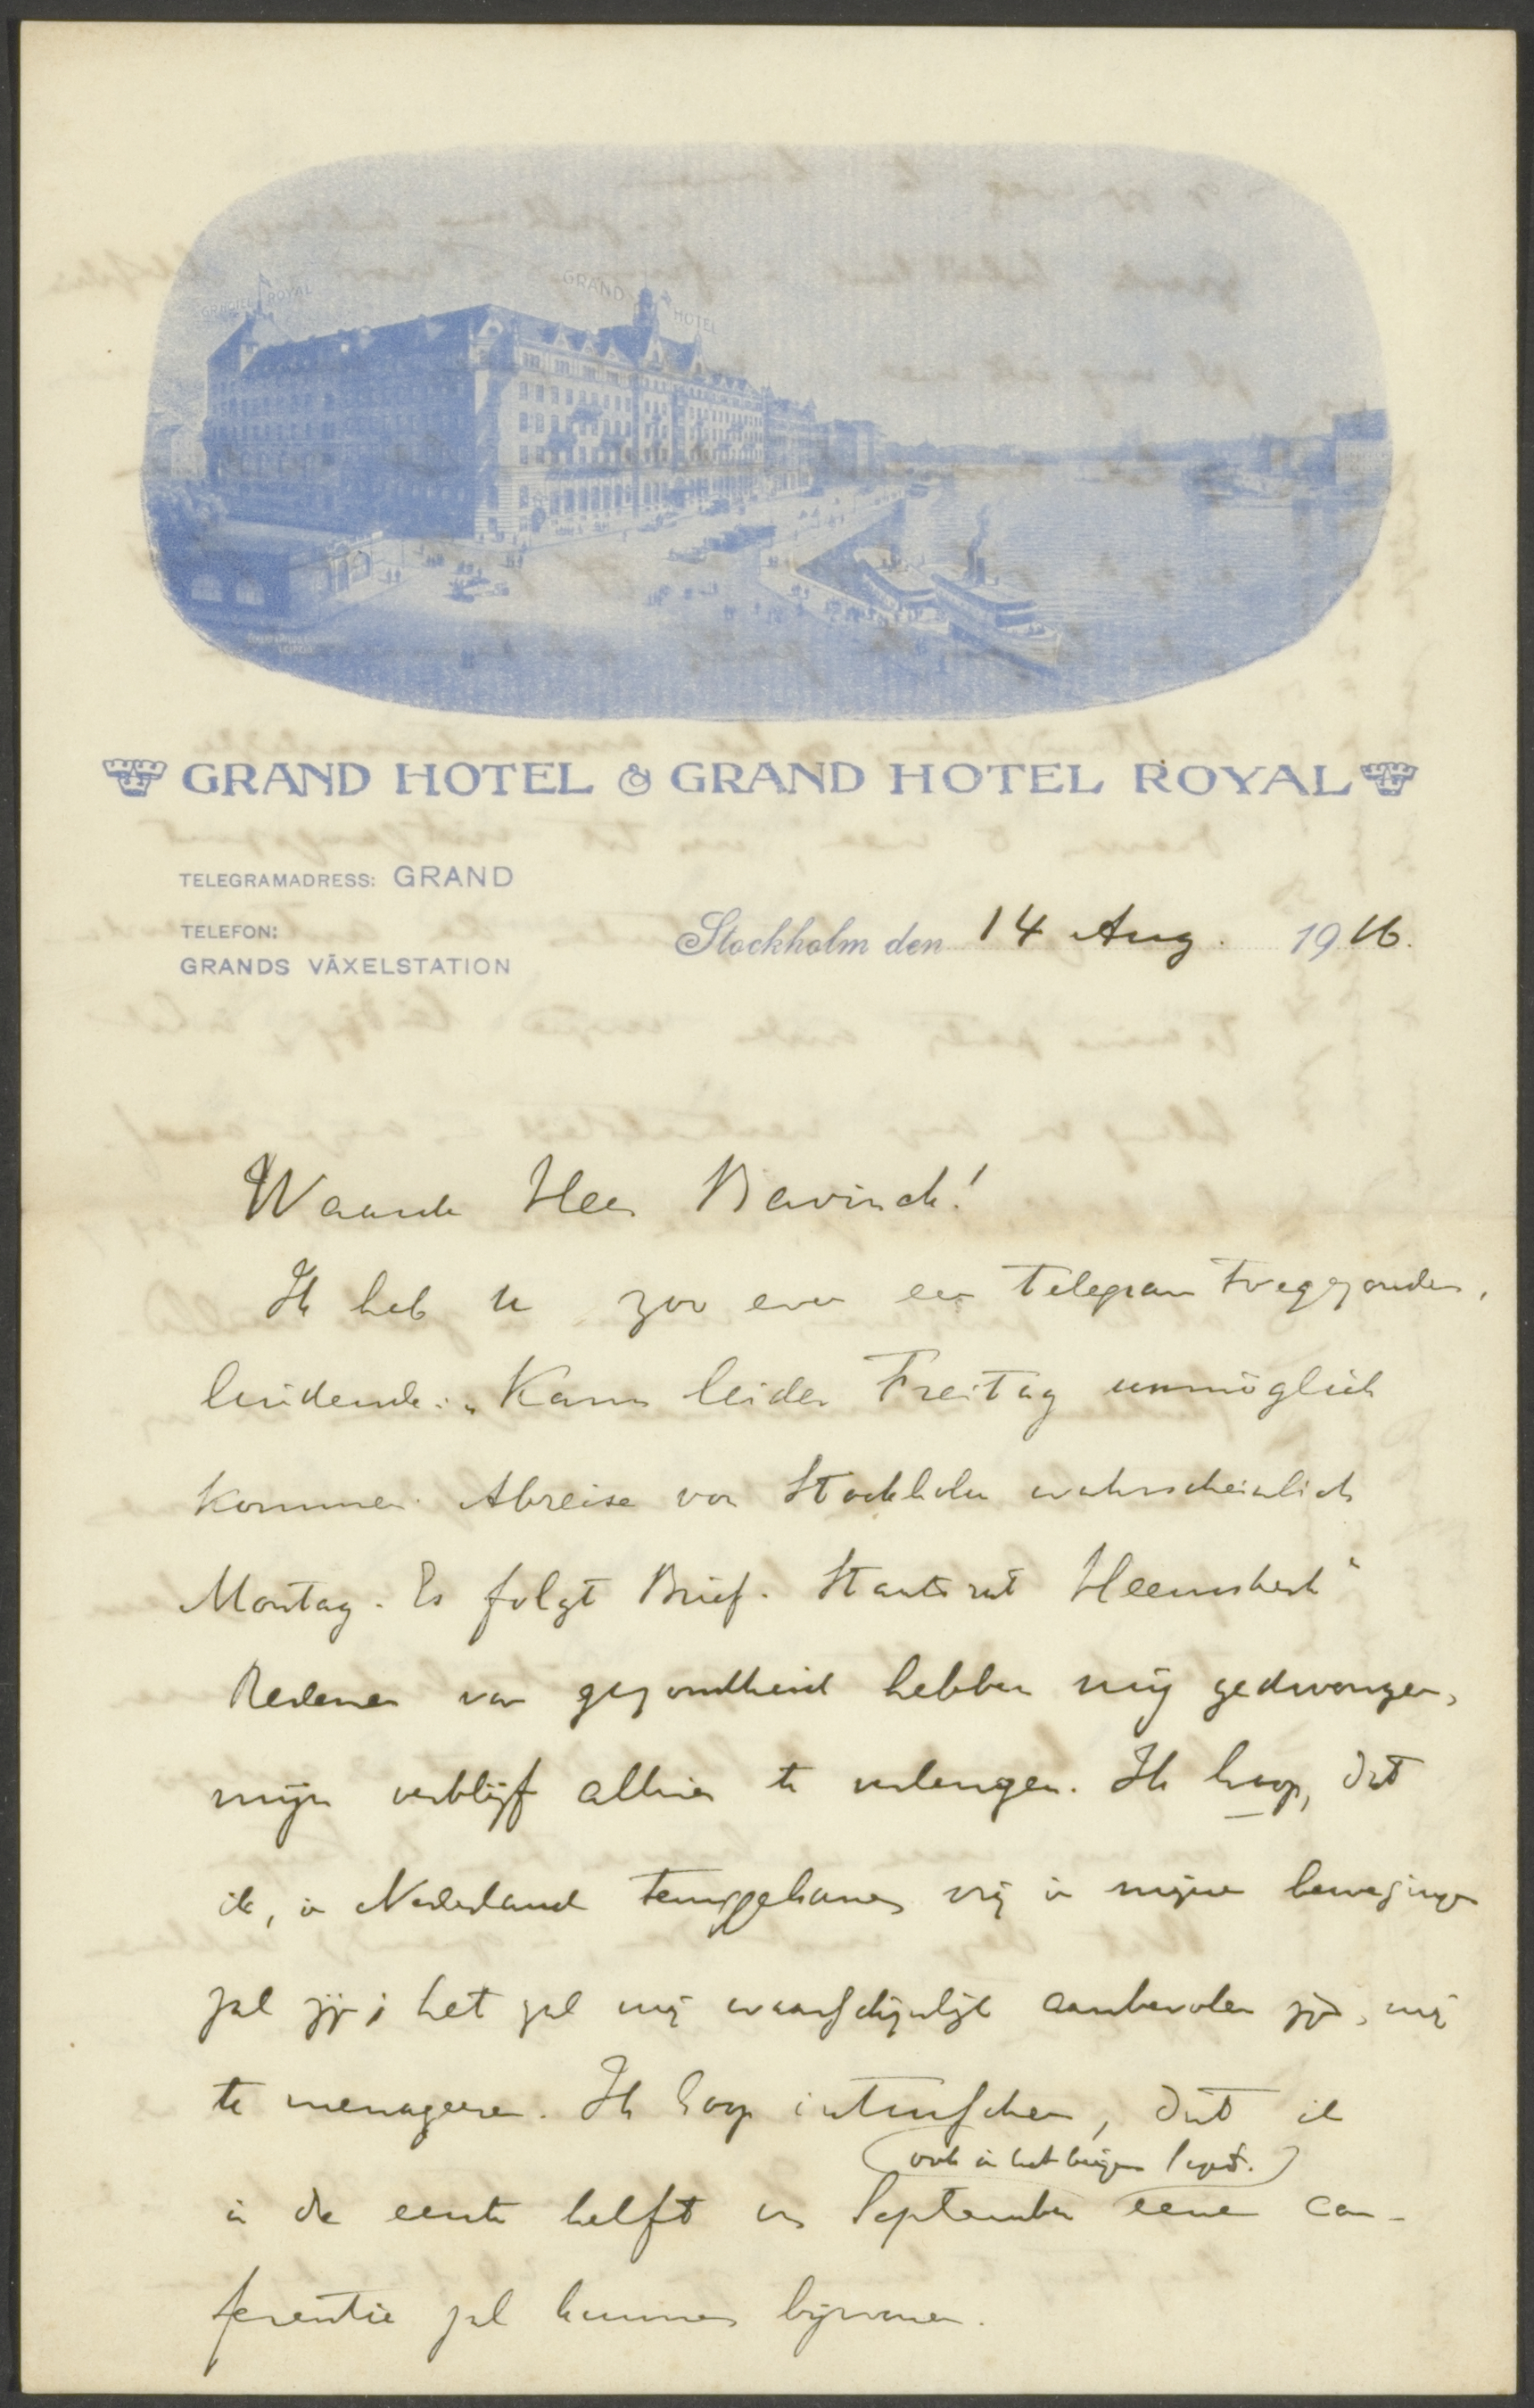 GRAND HOTEL ROYAL
GRAND HOTEL
GRAND HOTEL & GRAND HOTEL ROYAL
TELEGRAMADRESS: GRAND
TELEFON:
GRANDS VÄXELSTATION
Stockholm den 14 Aug. 1916.
Waarde Heer Bavinck!
Ik heb U zoo even een telegram toegezonden,
luidende: „Kann leider Freitag unmöglich
kommen. Abreise von Stockholm wahrscheinlich
Montag. Es folgt Brief. Staatsrat Heemskerk"
Redenen van gezondheid hebben mij gedwongen,
mijn verblijf alhier te verlengen. Ik hoop, dat
ik, in Nederland teruggekomen vrij in mijne bewegingen
zal zijn; het zal mij waarschijnlijk aanbevolen zijn, mij
te menageeren. Ik hoop intusschen, dat ik
(ook in het begin Sept.)
in de eerste helft van September eene con-
ferentie zal kunnen bijwonen.